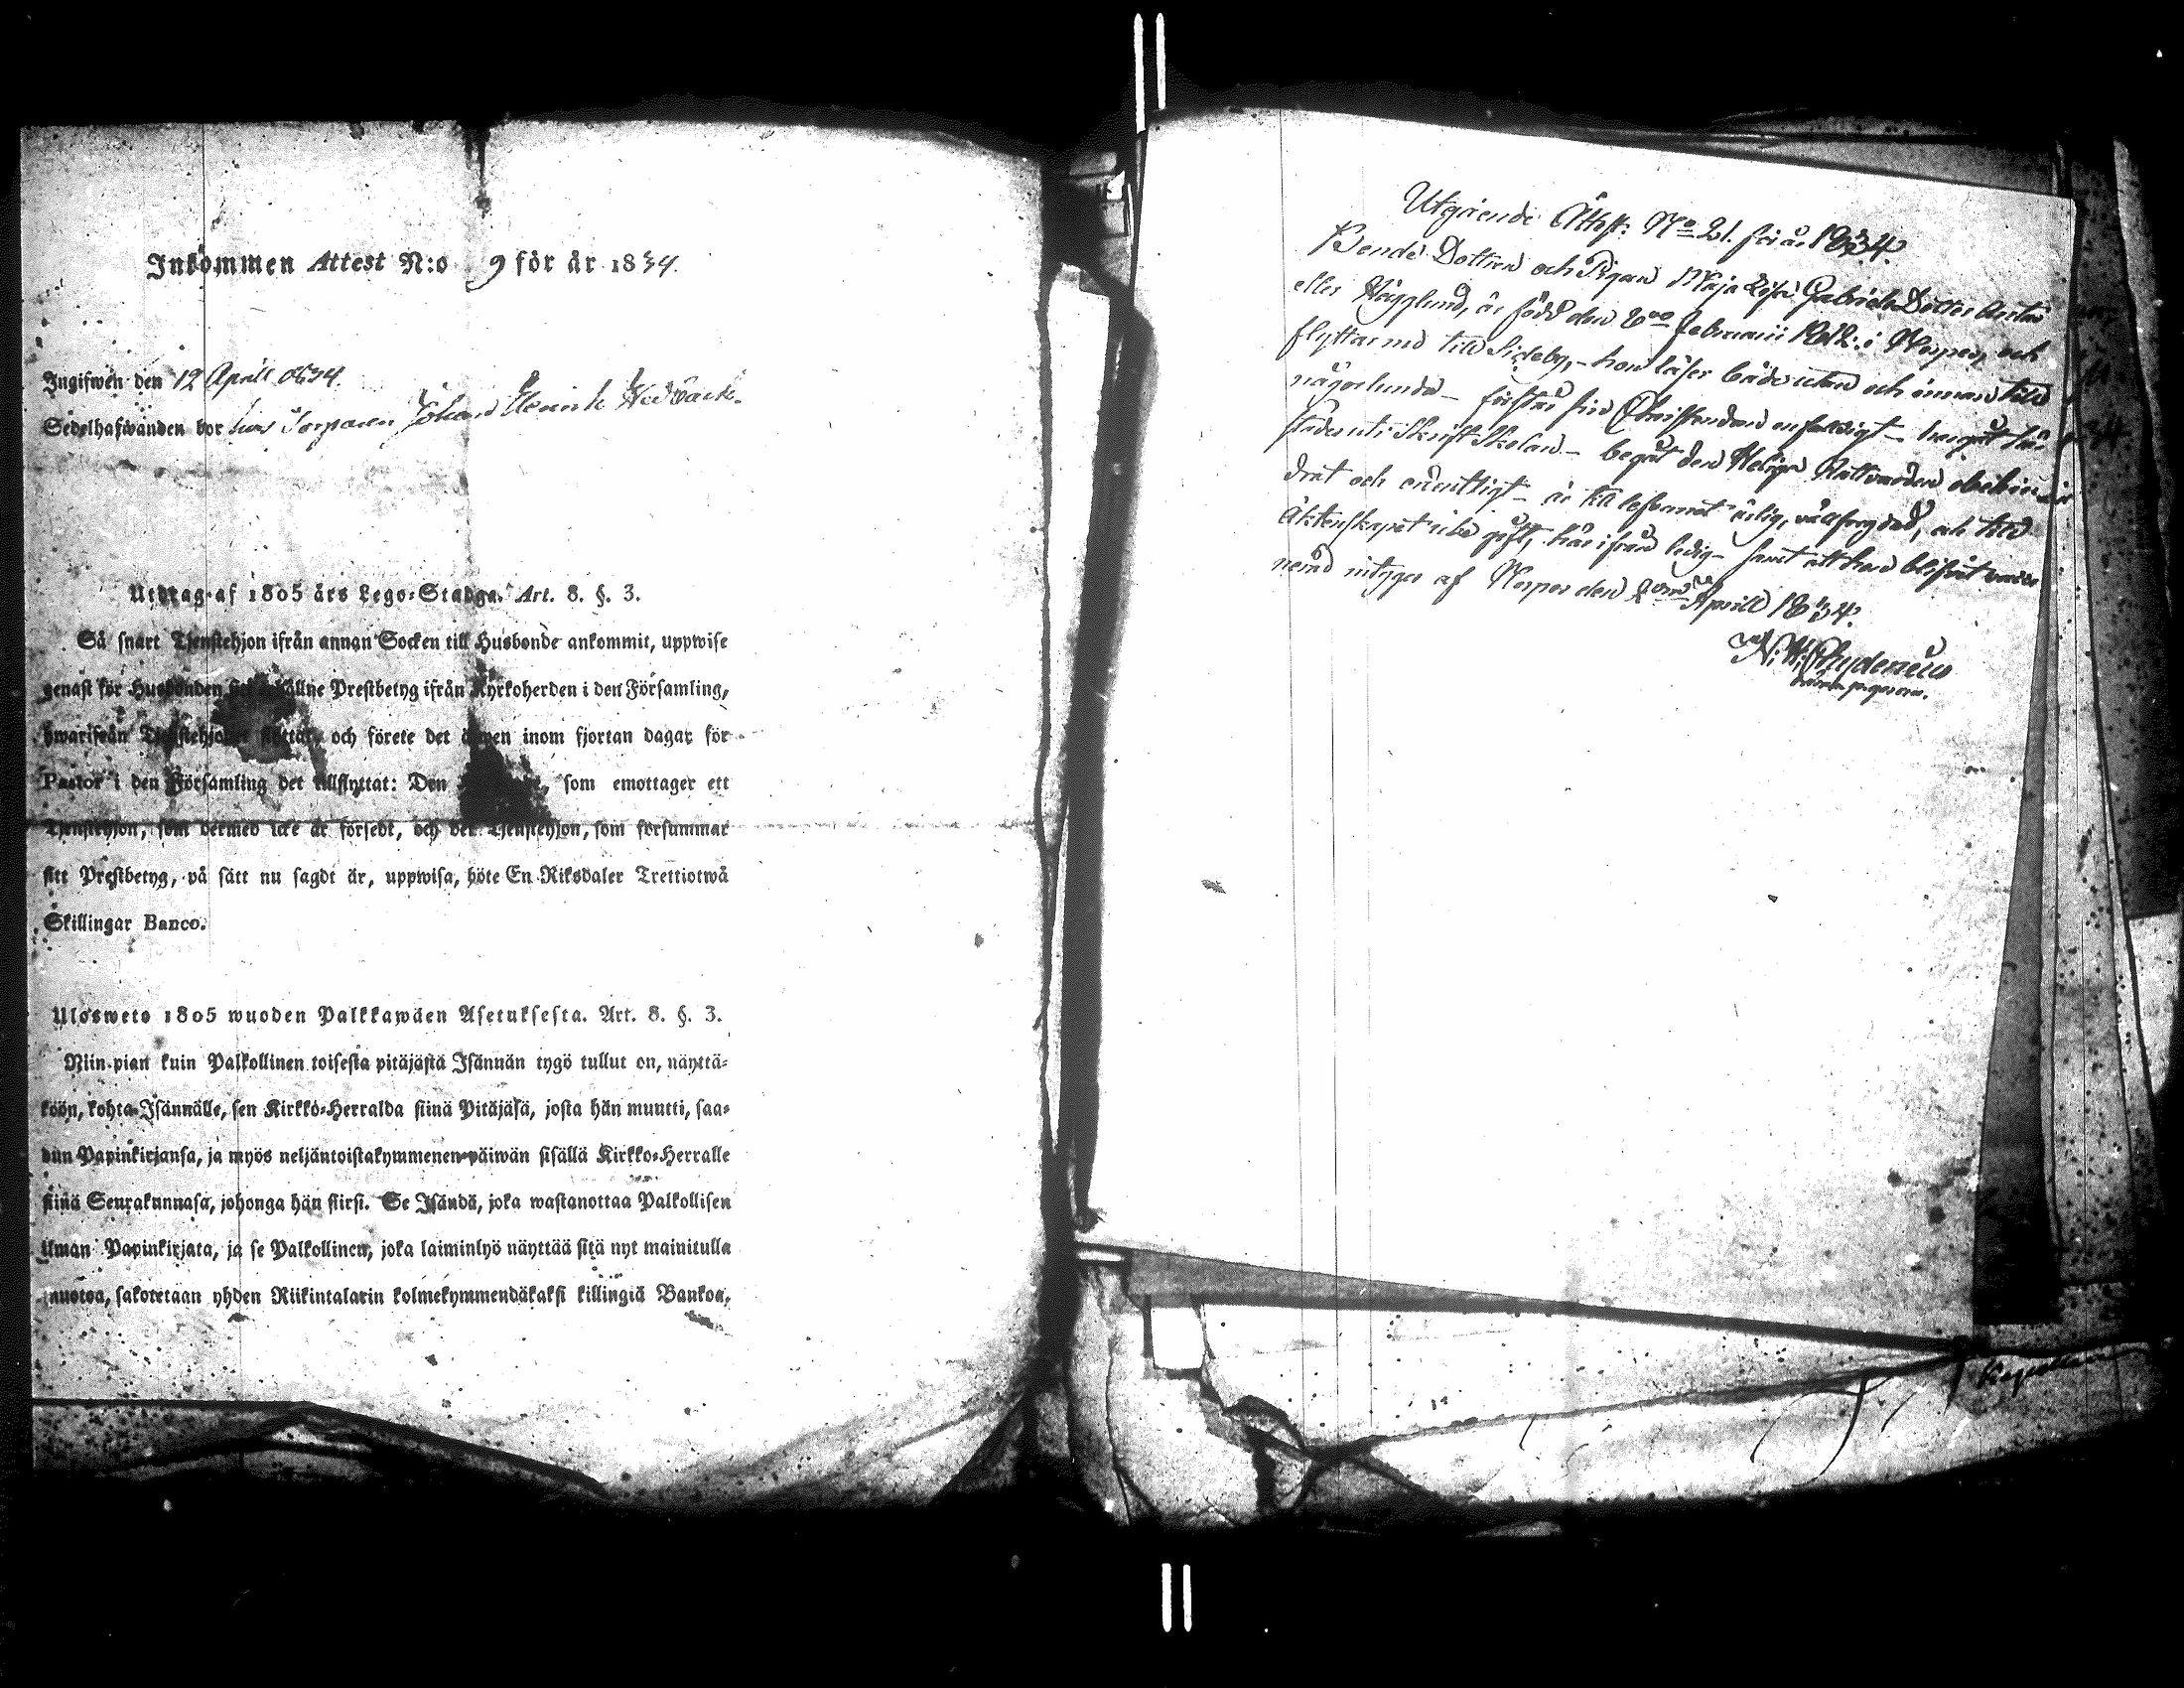 Inkommen Attest N:o 9 för år 1834.
Ingifwen den 12 April 1834.
Sedelhafwanden bor hos Torparen Johan Henrik Hedback.
Utdrag af 1805 års Lego-Stadga. Art. 8. §. 3.
Så snart Tjenstehjon ifrån annan Socken till Husbonde ankommit, uppwise
genast för Husbonden sitt erhållne Prestbetyg ifrån Kyrkoherden i den Församling,
hwarifrån Tjenstehjonet flyttat, och förete det äfwen inom fjortan dagar för
Pastor i den Församling det tillflyttat: Den som emottager ett
Tjenstehjon, som dermed icke är försedt, och det Tjenstehjon, som försummar
sitt Prestbetyg, på sätt nu sagdt är, uppwisa, böte En Riksdaler Trettiotwå
Skillingar Banco.
Ulosweto 1805 wuoden Palkkawäen Asetuksesta. Art. 8. §. 3.
Niin pian kuin Palkollinen toisesta pitäjästä Isännän tygö tullut on, näyttä-
köön, kohta Isännälle, sen Kirkko-Herralda siinä Pitäjäsä, josta hän muutti, saa-
dun Papinkirjansa, ja myös neljäntoistakymmenen päiwän sisällä Kirkko-Herralle
siinä Seurakunnasa, johonga hän siirsi. Se Isändä, joka wastanottaa Palkollisen
ilman Papinkirjata, ja se Palkollinen, joka laiminlyö näyttää sitä nyt mainitulla
muotoa, sakotetaan yhden Riikintalarin kolmekymmendäkaksi killingiä Bankoa,
Utgående Attest: No 21. för år 1834.
Bonde Dottren och Pigan Maja Lisa Gabriels Dotter
eller Hägglund, är född den Februarii 1812 i och
flyttar nu till Sideby, - hon läser både utan och innan till
någorlunda - förstår sin Christendom enfaldigt -
städer uti Skrift Skolan - begåt den Heliga Nattvarden obehin-
drat och - är till lefvernet ärlig, välfrejdad, och till
Äktenskapet icke gift, härifrån ledig - samt att hon blifvit
intygar af den April 1834.
N. W. Chydenius